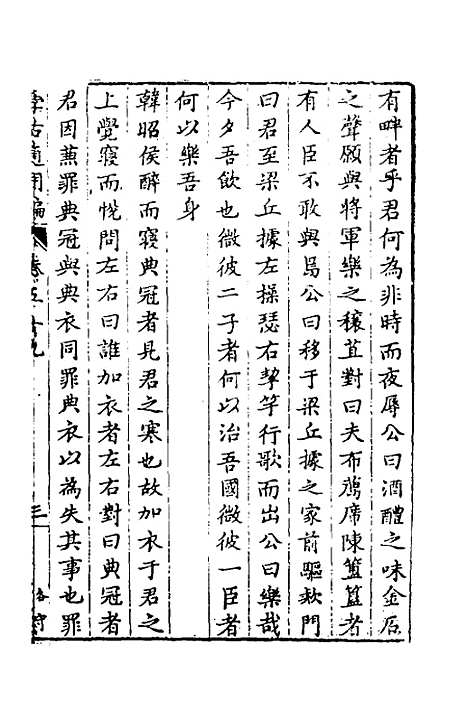 有畔者乎君何為非時而夜辱公曰酒醴之味金石
之聲願與將軍樂之穰苴對曰夫布薦席陳簠簋者
有人臣不敢與焉公曰移于梁丘據之家前驅款門
曰君至梁丘據左操瑟右挈竽行歌而出公曰樂哉
今夕吾飲也微彼二子者何以治吾國微彼一臣者
何以樂吾身
韓昭侯醉而寢典冠者見君之寒也故加衣于君之
上覺寢而悅問左右曰誰加衣者左右對曰典冠者
君因兼罪典冠與典衣同罪典衣以為失其事也罪
學古適用編 卷五十九 三